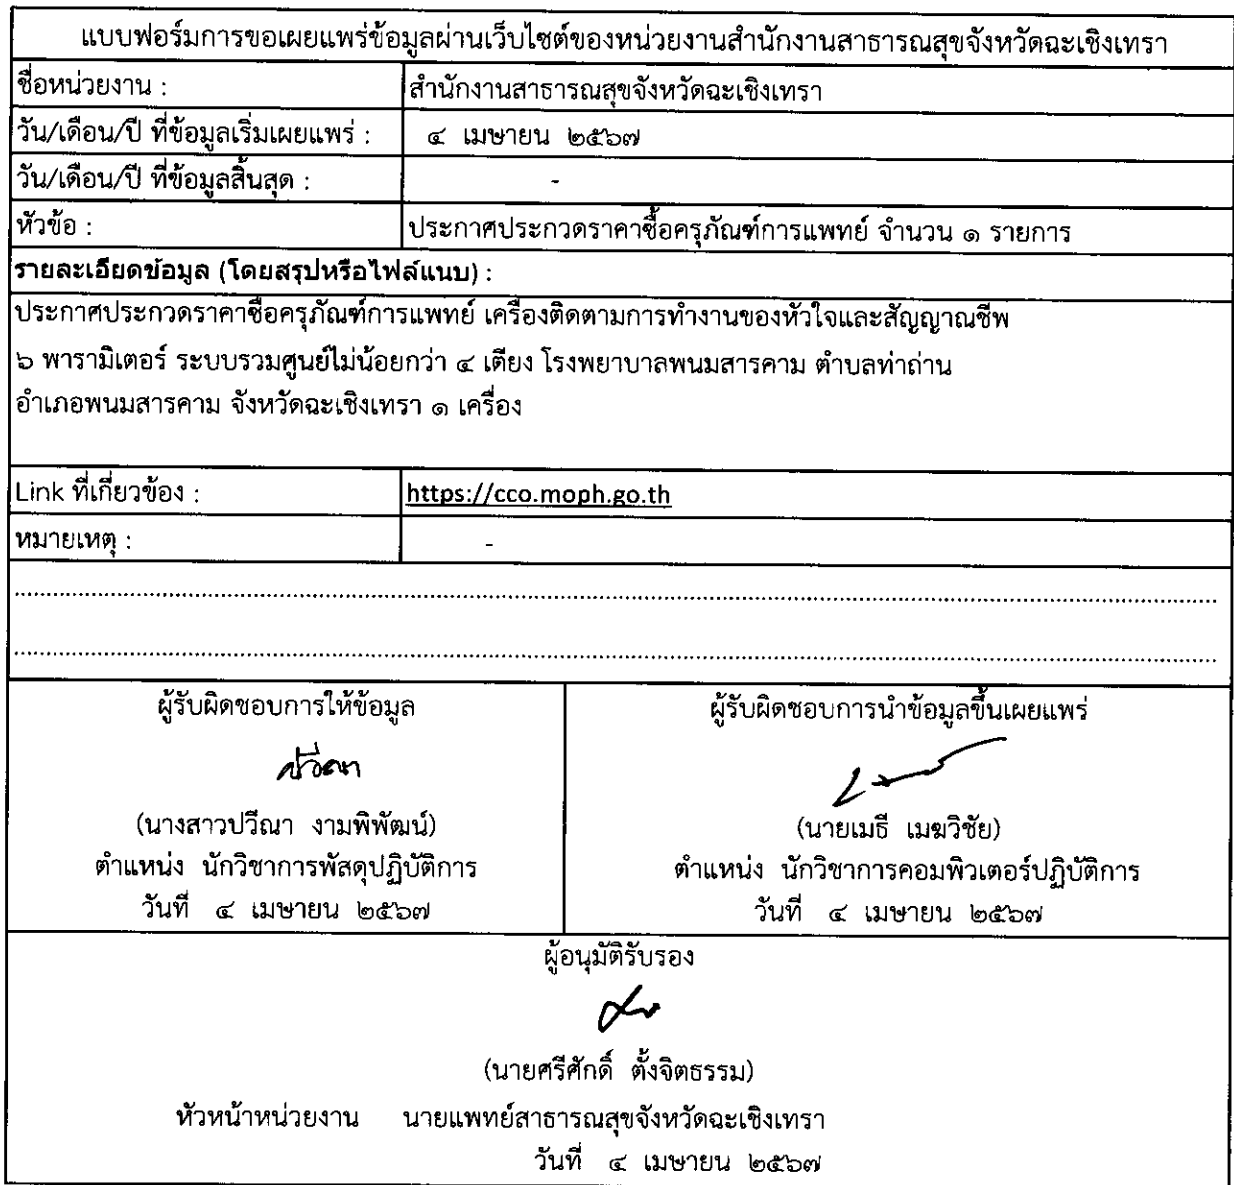 แบบฟอร์มการขอเผยแพร่ข้อมูลผ่านเว็บไซต์ของหน่วยงานสำนักงานสาธารณสุขจังหวัดฉะเชิงเทรา
ชื่อหน่วยงาน : สำนักงานสาธารณสุขจังหวัดฉะเชิงเทรา
วัน/เดือน/ปี ที่ข้อมูลเริ่มเผยแพร่ : ๔ เมษายน ๒๕๖๗
วัน/เดือน/ปี ที่ข้อมูลสิ้นสุด : -
หัวข้อ : ประกาศประกวดราคาซื้อครุภัณฑ์การแพทย์ จำนวน ๑ รายการ
รายละเอียดข้อมูล (โดยสรุปหรือไฟล์แนบ) :
ประกาศประกวดราคาซื้อครุภัณฑ์การแพทย์ เครื่องติดตามการทำงานของหัวใจและสัญญาณชีพ
๖ พารามิเตอร์ ระบบรวมศูนย์ไม่น้อยกว่า ๔ เตียง โรงพยาบาลพนมสารคาม ตำบลท่าถ่าน
อำเภอพนมสารคาม จังหวัดฉะเชิงเทรา ๑ เครื่อง
Link ที่เกี่ยวข้อง : https://cco.moph.go.th
หมายเหตุ : -
ผู้รับผิดชอบการให้ข้อมูล
ปวีณา
(นางสาวปวีณา งามพิพัฒน์)
ตำแหน่ง นักวิชาการพัสดุปฏิบัติการ
วันที่ ๔ เมษายน ๒๕๖๗
ผู้รับผิดชอบการนำข้อมูลขึ้นเผยแพร่
(นายเมธี เมฆวิชัย)
ตำแหน่ง นักวิชาการคอมพิวเตอร์ปฏิบัติการ
วันที่ ๔ เมษายน ๒๕๖๗
ผู้อนุมัติรับรอง
(นายศรีศักดิ์ ตั้งจิตธรรม)
หัวหน้าหน่วยงาน นายแพทย์สาธารณสุขจังหวัดฉะเชิงเทรา
วันที่ ๔ เมษายน ๒๕๖๗